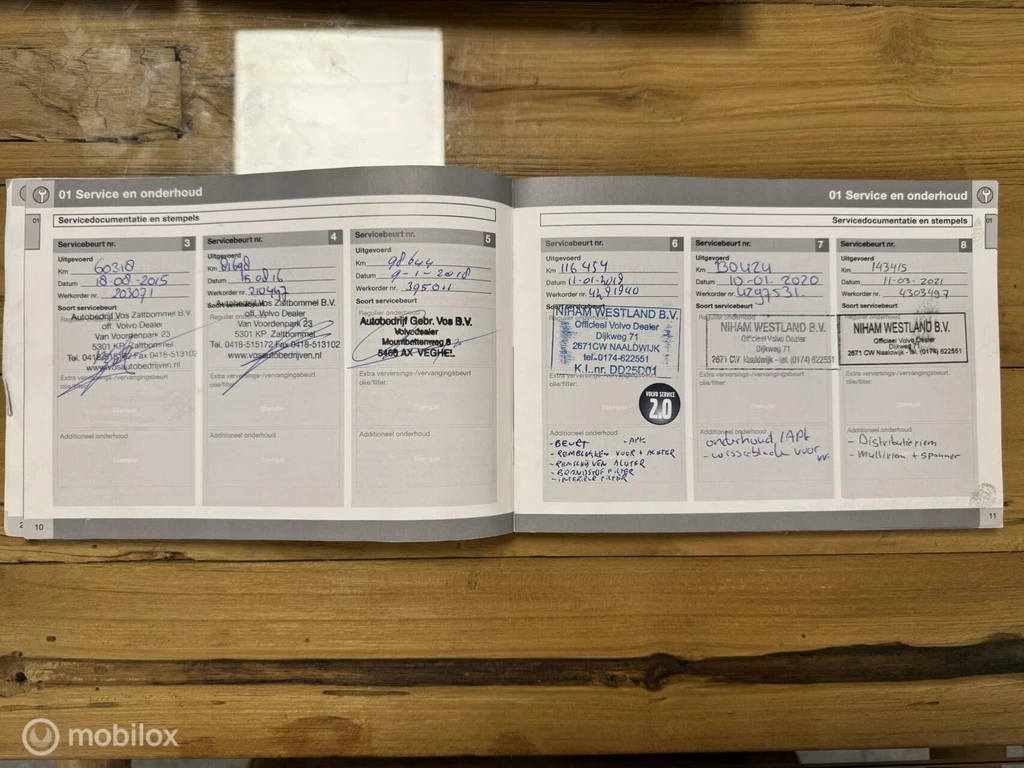 01 Service en onderhoud
01
Servicedocumentatie en stempels
Servicebeurt nr. 3
Uitgevoerd
Km 60318
Datum 18-08-2015
Werkorder nr. 203071
Soort servicebeurt
Autobedrijf Vos Zaltbommel B.V.
off. Volvo Dealer
Van Voordenpark 23
5301 KP Zaltbommel
Tel. 0418-515172 Fax 0418-513102
www.vosautobedrijven.nl
Extra verversings-/vervangingsbeurt
olie/filter:
Stempel
Additioneel onderhoud
Stempel
Servicebeurt nr. 4
Uitgevoerd
Km 81698
Datum 150816
Werkorder nr. 210497
Autobedrijf Vos Zaltbommel B.V.
off. Volvo Dealer
Van Voordenpark 23
5301 KP Zaltbommel
Tel. 0418-515172 Fax 0418-513102
www.vosautobedrijven.nl
Extra verversings-/vervangingsbeurt
olie/filter:
Stempel
Additioneel onderhoud
Stempel
Servicebeurt nr. 5
Uitgevoerd
Km 98644
Datum 9-1-2018
Werkorder nr. 395011
Soort servicebeurt
Regulier onderhoud
Autobedrijf Gebr. Vos B.V.
Volvodealer
5466 AX VEGHEL
Extra verversings-/vervangingsbeurt
olie/filter:
Stempel
Additioneel onderhoud
Stempel
10
01 Service en onderhoud
01
Servicedocumentatie en stempels
Servicebeurt nr. 6
Uitgevoerd
Km 116454
Datum 11-01-2019
Werkorder nr. 4291940
Soort servicebeurt
NIHAM WESTLAND B.V.
Officieel Volvo Dealer
Dijkweg 71
2671CW NAALDWIJK
tel. 0174-622551
K.I. nr. DD25D01
Extra verversings-/vervangingsbeurt
olie/filter:
VOLVO SERVICE
2.0
Additioneel onderhoud
- BEURT - APK
- REMBLOKKEN VOOR + ACHTER
- REMSCHIJVEN ACHTER
- BRANDSTOF FILTER
- INTERIEUR FILTER
Servicebeurt nr. 7
Uitgevoerd
Km 130424
Datum 10-01-2020
Werkorder nr. 4297531
Soort servicebeurt
Regulier onderhoud
NIHAM WESTLAND B.V.
Officieel Volvo Dealer
Dijkweg 71
2671 CW Naaldwijk - tel. (0174) 622551
Extra verversings-/vervangingsbeurt
olie/filter:
Stempel
Additioneel onderhoud
onderhoud / APK
- wisserblade voor
Servicebeurt nr. 8
Uitgevoerd
Km 143415
Datum 11-03-2021
Werkorder nr. 4303497
Soort servicebeurt
Regulier onderhoud
NIHAM WESTLAND B.V.
Officieel Volvo Dealer
Dijkweg 71
2671 CW Naaldwijk - tel. (0174) 622551
Extra verversings-/vervangingsbeurt
olie/filter:
Stempel
Additioneel onderhoud
- Distributieriem
- Multiriem + spanner
11
mobilox